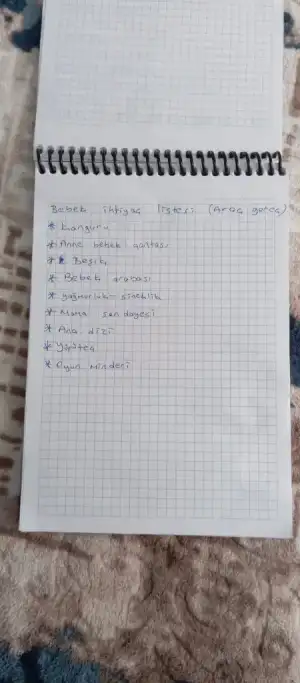 Bebek ihtiyaç listesi (Araç gereç)
* Kanguru
* Anne bebek çantası
* Beşik
* Bebek arabası
* yağmurluk - sineklik
* Mama sandalyesi
* Ana dizi
* Oyun minderi